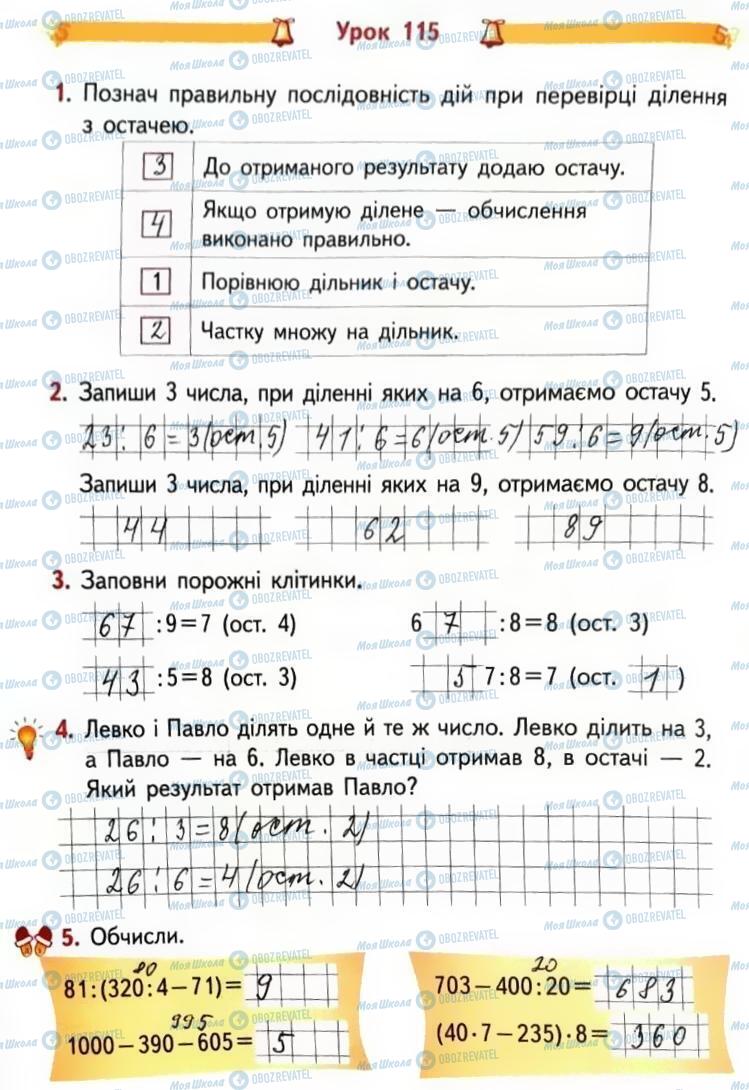 Урок 115
1. Познач правильну послідовність дій при перевірці ділення
з остачею.
3 До отриманого результату додаю остачу.
4 Якщо отримую ділене — обчислення
виконано правильно.
1 Порівнюю дільник і остачу.
2 Частку множу на дільник.
2. Запиши 3 числа, при діленні яких на 6, отримаємо остачу 5.
23 : 6 = 3 (ост. 5) 41 : 6 = 6 (ост. 5) 59 : 6 = 9 (ост. 5)
Запиши 3 числа, при діленні яких на 9, отримаємо остачу 8.
44 62 89
3. Заповни порожні клітинки.
67 : 9 = 7 (ост. 4) 6 7 : 8 = 8 (ост. 3)
43 : 5 = 8 (ост. 3) 5 7 : 8 = 7 (ост. 1)
4. Левко і Павло ділять одне й те ж число. Левко ділить на 3,
а Павло — на 6. Левко в частці отримав 8, в остачі — 2.
Який результат отримав Павло?
26 : 3 = 8 (ост. 2)
26 : 6 = 4 (ост. 2)
5. Обчисли.
80 20
81 : (320 : 4 – 71) = 9 703 – 400 : 20 = 683
995
1000 – 390 – 605 = 5 (40 · 7 – 235) · 8 = 360
МояШкола OBOZREVATEL